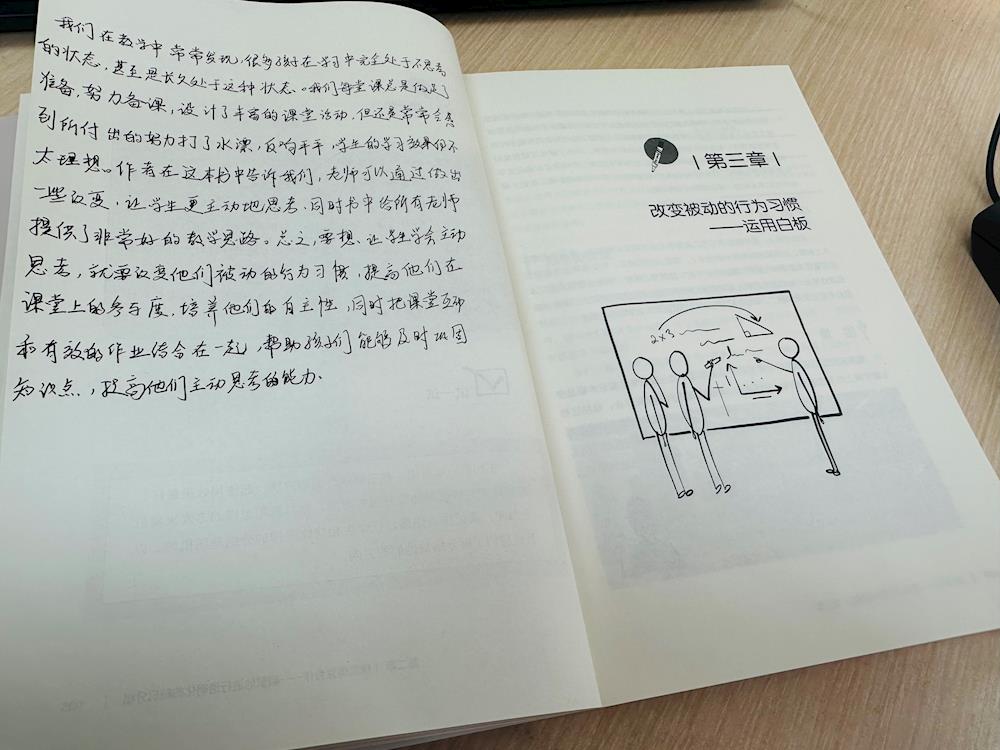 我们在教学中常常发现,很多孩子在学习中完全处于不思考
的状态,甚至是长久处于这种状态。我们每堂课总是做足了
准备,努力备课,设计了丰富的课堂活动,但还是常常会感
到所付出的努力打了水漂,反响平平,学生的学习效果仍不
太理想。作者在这本书中告诉我们,老师可以通过做出
一些改变,让学生更主动地思考,同时书中给所有老师
提供了非常好的教学思路。总之,要想让学生学会主动
思考,就要改变他们被动的行为习惯,提高他们在
课堂上的参与度,培养他们的自主性,同时把课堂互动
和有效的作业结合在一起,帮助孩子们能够及时巩固
知识点,提高他们主动思考的能力.
第三章
改变被动的行为习惯
——运用白板
2×3